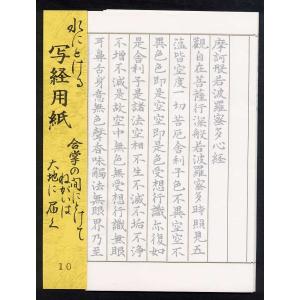 水にとける
写経用紙
合掌の間にとけて
ねがいは
大地に届く
10
摩訶般若波羅蜜多心経
観自在菩薩行深般若波羅蜜多時照見五
蘊皆空度一切苦厄舎利子色不異空空不
異色色即是空空即是色受想行識亦復如
是舎利子是諸法空相不生不滅不垢不浄
不増不減是故空中無色無受想行識無眼
耳鼻舌身意無色声香味触法無眼界乃至